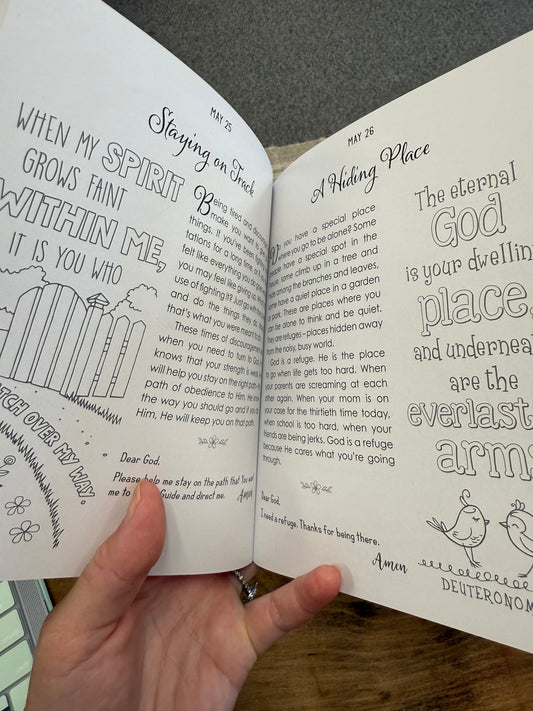 WHEN MY SPIRIT
GROWS FAINT
WITHIN ME,
IT IS YOU WHO
WATCH OVER MY WAY.
MAY 25
Staying on Track
Being tired and
make you want to
things. If you've been
tations for a long time, or if
felt like everything you
you may feel like giving up.
use of fighting it? Just go
and do the things
that's what you were meant
These times of discouragement
when you need to turn to God
knows that your strength is weak
will help you stay on the right path
path of obedience to Him. He knows
the way you should go and if you
Him, He will keep you on that path.
Dear God,
Please help me stay on the path that You
me to Guide and direct me.
Amen
MAY 26
A Hiding Place
Do you have a special place
where you go to be alone? Some
people have a special spot in the
house, some climb up in a tree and
hide among the branches and leaves,
some have a quiet place in a garden
or park. These are places where you
can be alone to think and be quiet.
They are refuges – places hidden away
from the noisy, busy world.
God is a refuge. He is the place
to go when life gets too hard. When
your parents are screaming at each
other again. When your mom is on
your case for the thirtieth time today,
when school is too hard, when your
friends are being jerks. God is a refuge
because He cares what you're going
through.
Dear God,
I need a refuge. Thanks for being there.
Amen
The eternal
God
is your dwelling
place,
and underneath
are the
everlasting
arms
DEUTERONOMY